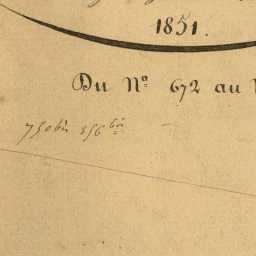 1851.
Du Nº 672 au
750bis 856bis